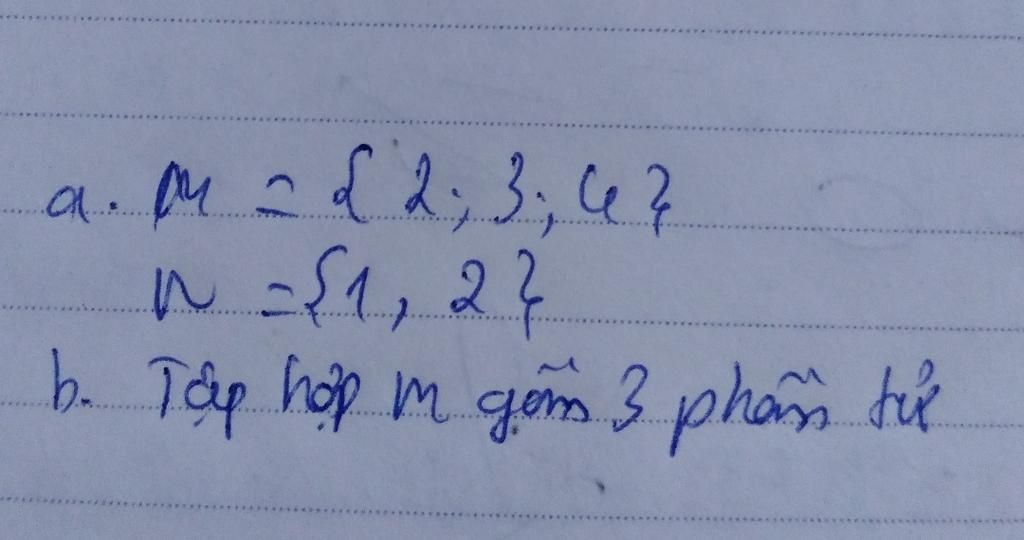 a. M = { 2; 3; 4 }
N = {1, 2}
b. Tập hợp M gồm 3 phần tử